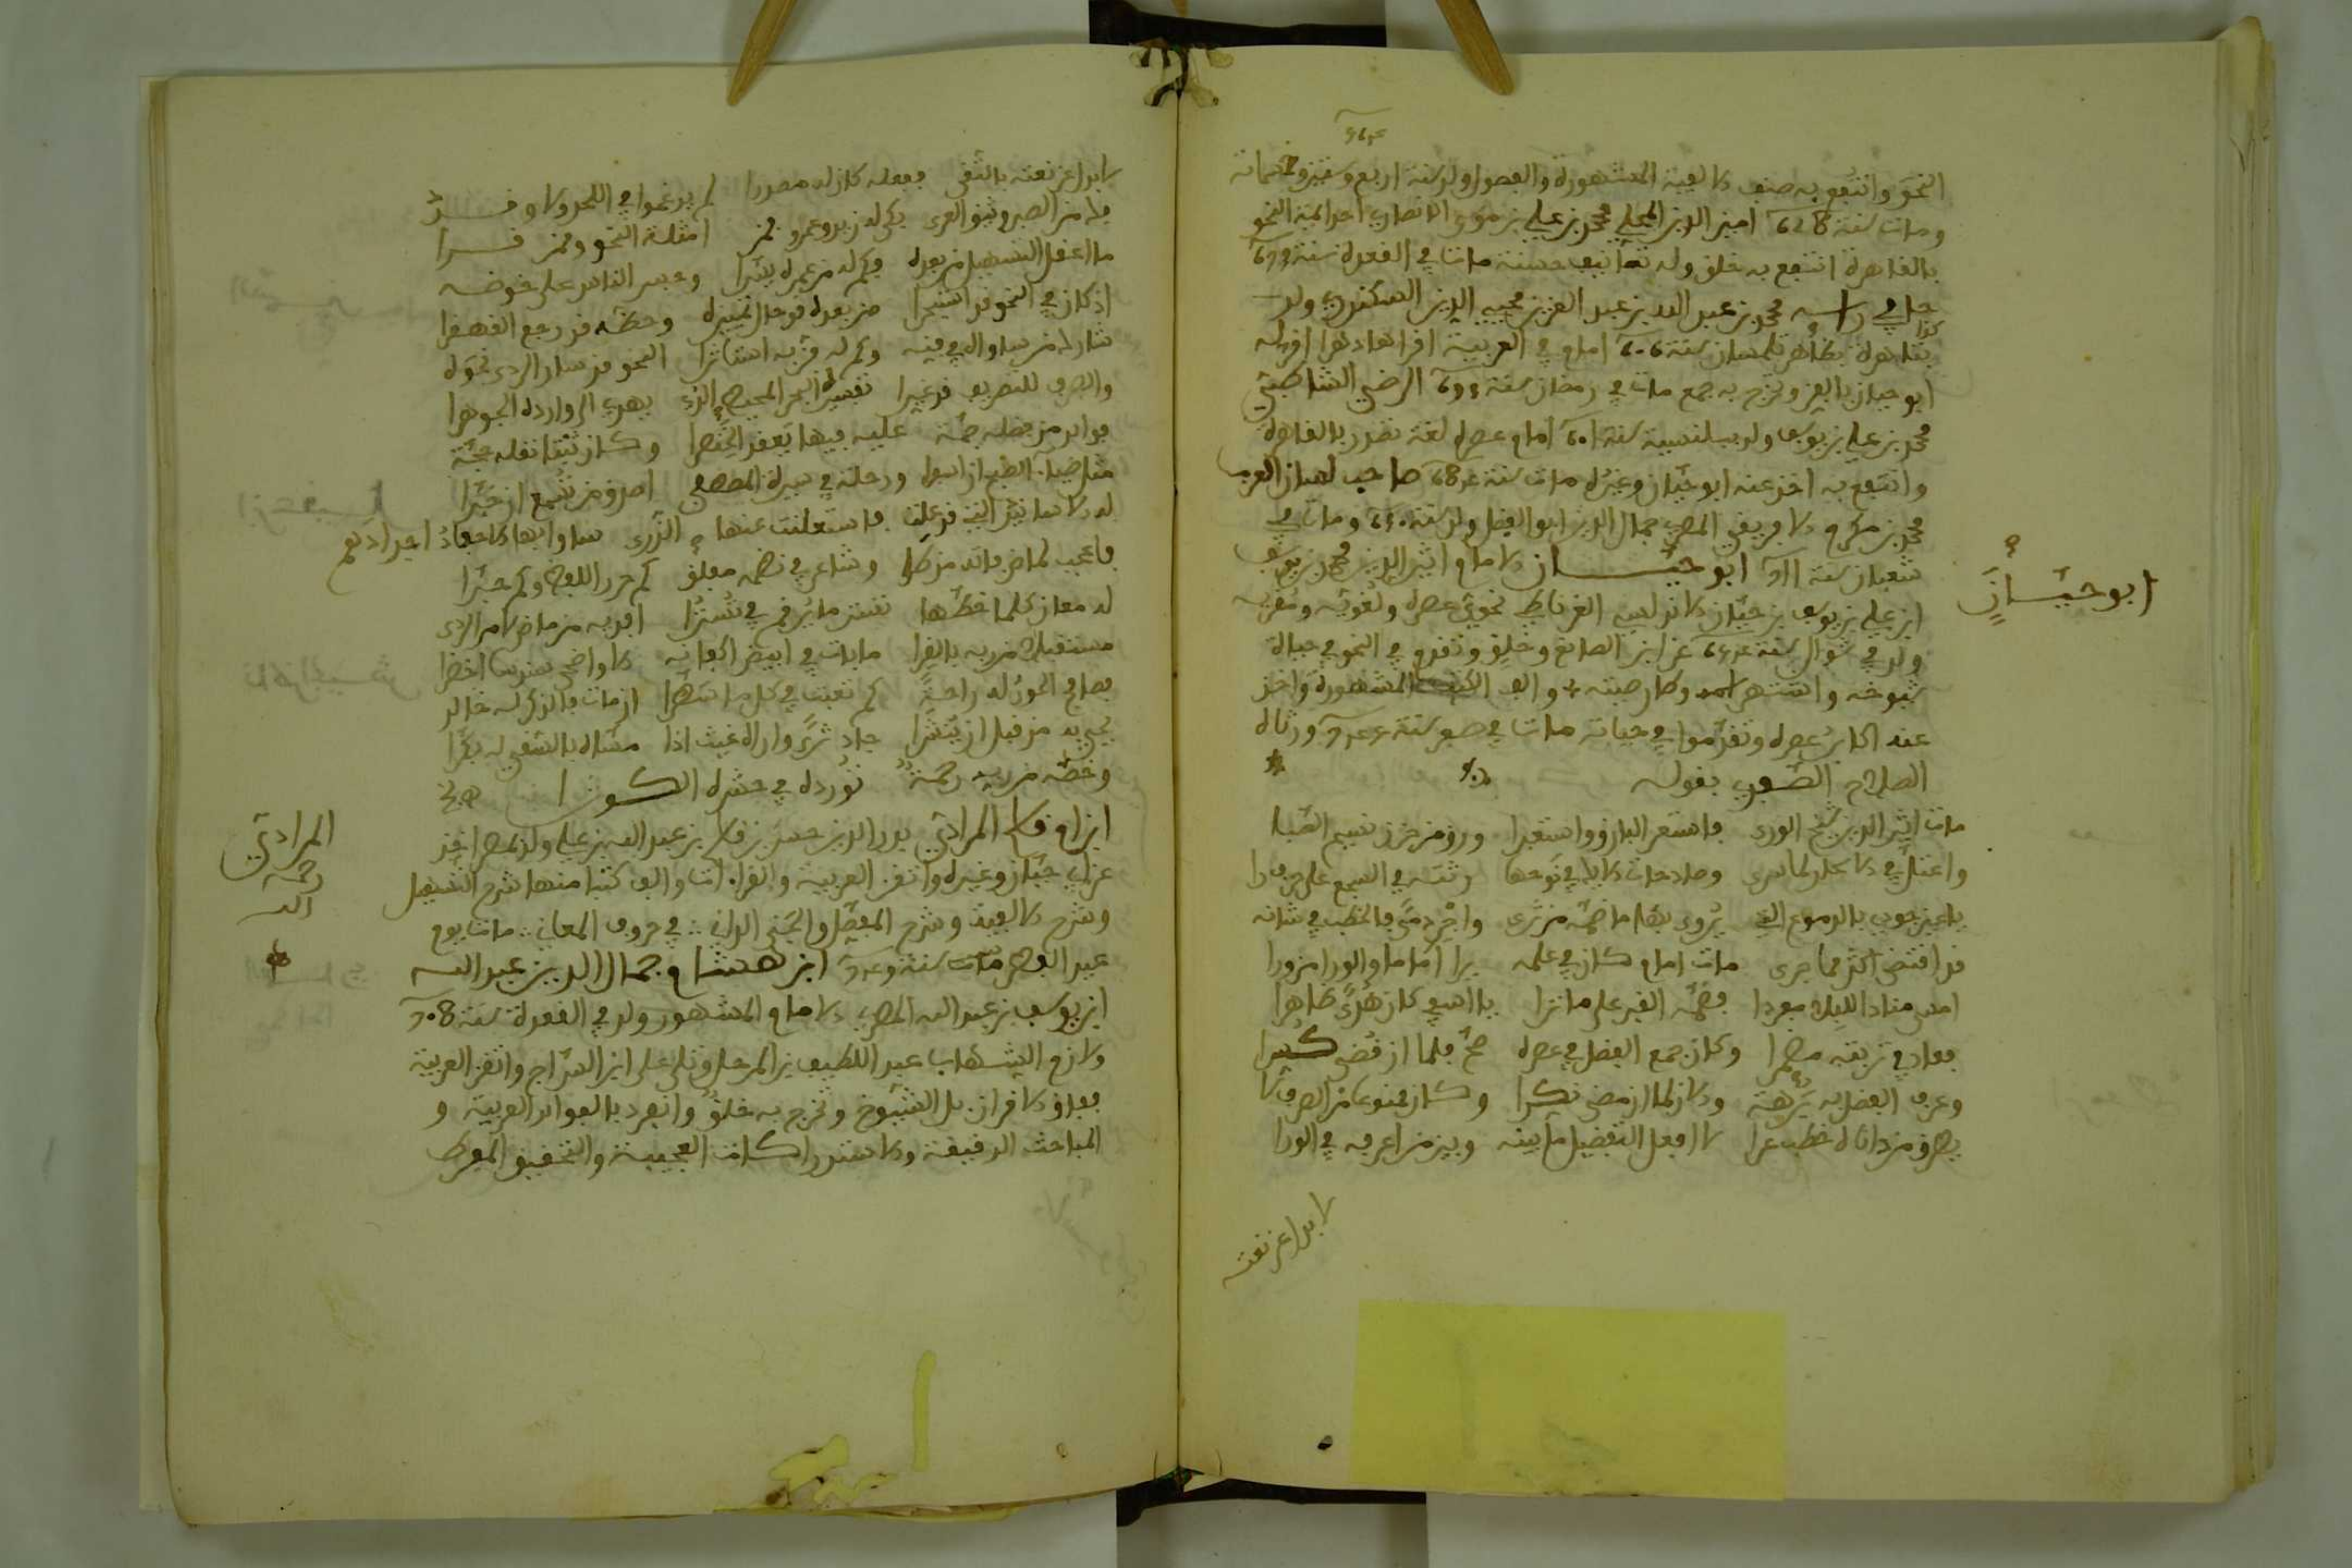 564
النحو وانتفع به صنف الالفية المشهورة والفصول ولد سنة اربع وستين وخمسمائة
ومات سنة 628 امين الدين المحلي محمد بن علي بن موسى الانصاري احد ائمة النحو
بالقاهرة انتفع به خلق وله تصانيف حسنة مات في القعدة سنة 673
حافي راسه محمد بن عبد الله بن عبد العزيز محيي الدين السكندري ولد
كذا
بتاهرة بظاهر تلمسان سنة 606 امام في العربية اقرا هادهرا اخذ له
ابو حيان بالفر وتخرج به جمع مات في رمضان سنة 693 الرضي الشاطبي
محمد بن علي بن يوسف ولد ببلنسية سنة 601 امام عصره لغة تصدر بالقاهرة
وانتفع به اخذ عنه ابو حيان وغيره مات سنة 684 صاحب لسان العرب
محمد بن مكرم الافريقي المصري جمال الدين ابو الفضل ولد سنة 630 ومات في
شعبان سنة 711 ابو حيان الامام اثير الدين محمد بن يوسف
ابن علي بن يوسف بن حيان الاندلسي الغرناطي نحوي عصره ولغويه ومقريه
ولد في شوال سنة 654 عن ابن الصائغ وخلق وتقدم في النحو في حياة
شيوخه واشتهر اسمه وطار صيته والف الكتب المشهورة واخذ
عنه اكابر عصره وتقدموا في حياته مات في صفر سنة 745 ورثاه
الصلاح الصفدي بقوله
مات اثير الدين شيخ الورى فاستعر البارق واستعبرا ورق من حزن نسيم الصبا
واعتل في الاسحار لما سرى وصادحات الايك في نوحها رثته في السجع على حرف را
يا عين جودي بالدموع التي يروى بها ما ضمه من ثرى واجر دما فالخطب في شانه
قد اقتضى اكثر مما جرى مات امام كان في علمه يرا اماما والورا من ورا
امسى منادا للبلا مفردا فضمه القبر على ما ترا يا اسفي كان هدى ظاهرا
فعاد في تربته مضمرا وكان جمع الفضل في عصره صح فلما ان قضى كسرا
وعرف الفضل به برهة والان لما ان مضى نكرا وكان ممنوعا من الصرف لا
يطرق من وافاه خطب عرا لا افعل التفضيل ما بينه وبين من اعرفه في الورا
لا بدل عن نعته
ابو حيان
لا بدل عن نعته بالتقى ففعله كان له مصدرا لم يدغموا في اللحد الا وقد
فك من الصبر وثيق العرى بكى له زيد وعمرو فمن امثلة النحو وممن قرا
ما اعقد التسهيل من بعده فكم له من عسرة يسرا وجسر الناس على خوضه
اذ كان في النحو قد استبحرا من بعده قد حال تمييزه وحظه قد رجع القهقرا
شارك من ساواه في فنه وكم له فن به استاثرا النحو قد سار الردى نحوه
والصرف للتصريف قد غيرا تفسيره البحر المحيط الذي يهدي الى وارده الجوهرا
فوائد من فضله جمة عليه فيها تعقد الخنصرا وكان ثبتا نقله حجة
مثل ضياء الصبح ان اسفرا ورحلة في سيرة المصطفى اصدق من تسمع ان خبرا
له الاسانيد التي قد علت فاستفلت عنها سوامي الذرى ساوى بها الاحفاد اجدادهم
فاعجب لماض فاته من طرا وشاعر في نظمه مفلق كم حرر اللفظ وكم حبرا
له معان كلما خطها تستر ما يرقم في تسترا افديه من ماض لامر الردى
مستقبلا من ربه بالقرا ما بات في ابيض اكفانه الا واضحى سندسا اخضرا
تصافح الحور له راحة كم تعبت في كل ما سطرا ان مات فالذكر له خالد
يحيى به من قبل ان ينشرا جاد ثرى واراه غيث اذا مساه بالسقي له بكرا
وخصه من ربه رحمة تورده في حشره الكوثرا
ابن ام قاسم المرادي بدر الدين حسن بن قاسم بن عبد الله بن علي ولد بمصر اخذ
عن ابي حيان وغيره واتقن العربية والقراات والف كتبا منها شرح التسهيل
وشرح الالفية وشرح المفصل والجنى الداني في حروف المعاني مات يوم
عيد الفطر سنة 749 ابن هشام جمال الدين عبد الله
ابن يوسف بن عبد الله المصري الامام المشهور ولد في القعدة سنة 708
ولازم الشهاب عبد اللطيف بن المرحل وتلى على ابن السراج واتقن العربية
ففاق الاقران بل الشيوخ وتخرج به خلق وانفرد بالفوائد الغريبة و
المباحث الدقيقة والاستدراكات العجيبة والتحقيق المفرط
المرادي
رحمه
الله